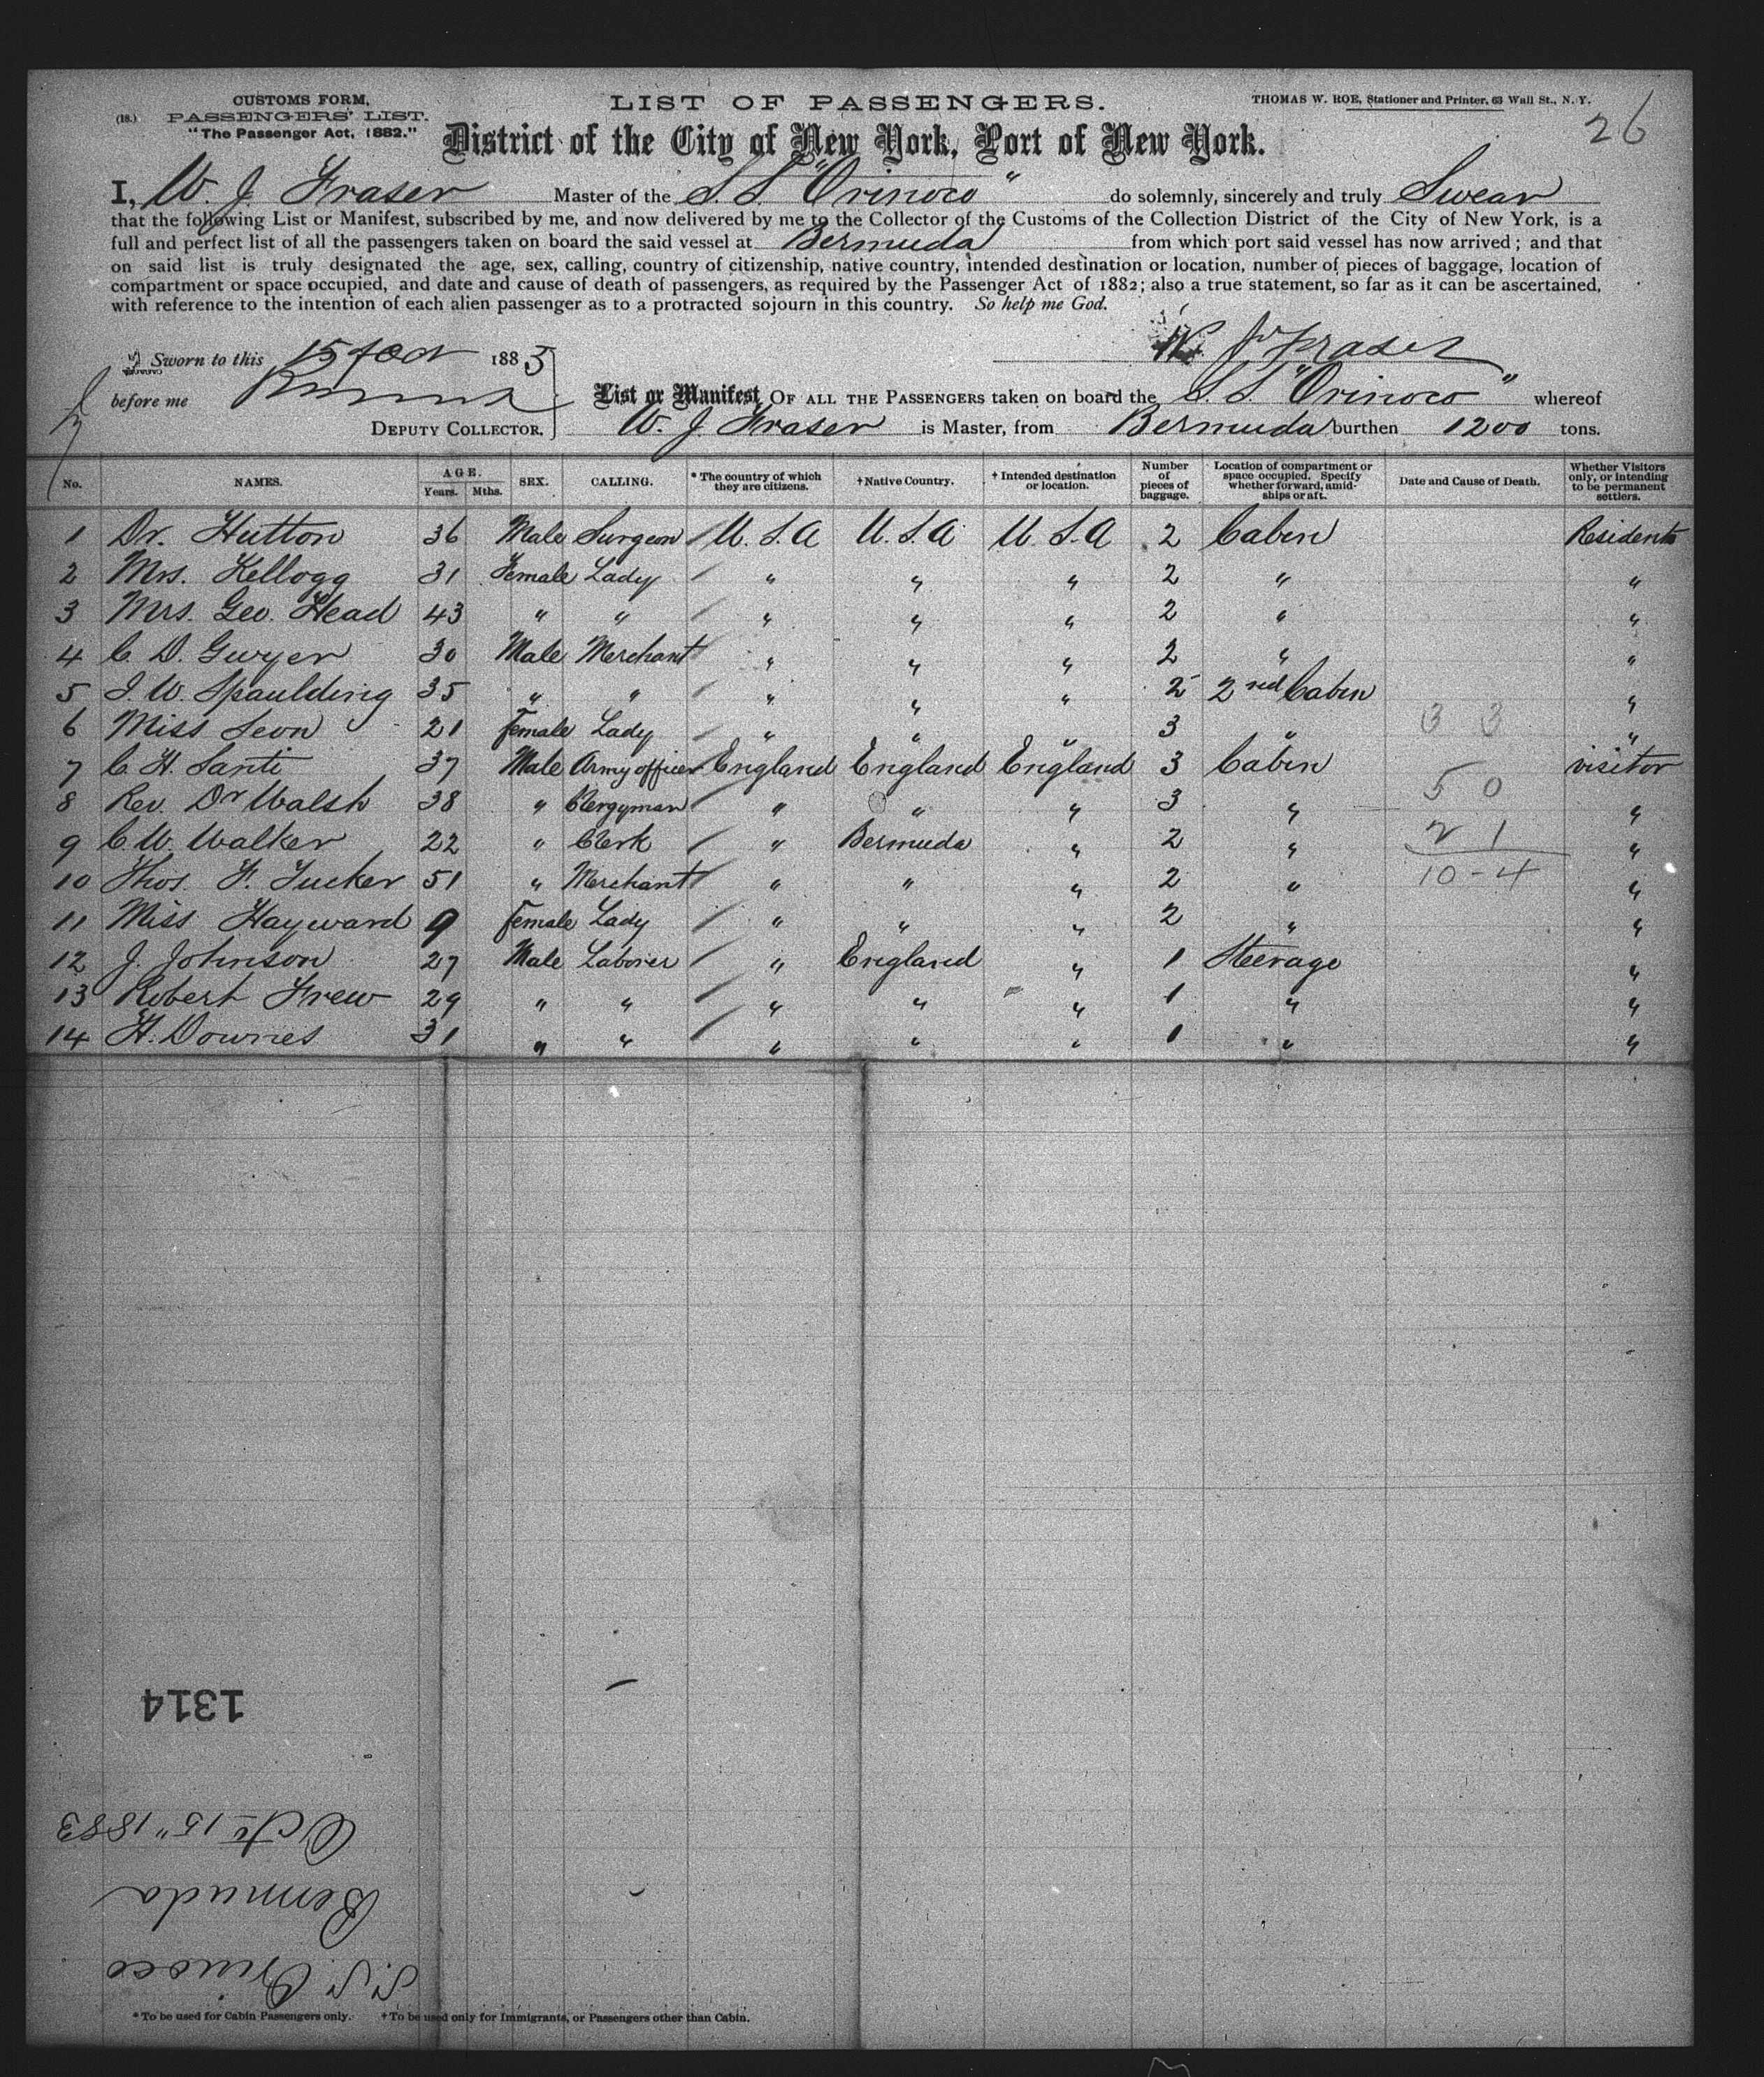 CUSTOMS FORM,
(18.) PASSENGERS' LIST.
"The Passenger Act, 1882."
LIST OF PASSENGERS.
THOMAS W. ROE, Stationer and Printer, 63 Wall St., N. Y.
26
District of the City of New York, Port of New York.
I, W. J. Fraser Master of the S. S. "Orinoco" do solemnly, sincerely and truly Swear
that the following List or Manifest, subscribed by me, and now delivered by me to the Collector of the Customs of the Collection District of the City of New York, is a
full and perfect list of all the passengers taken on board the said vessel at Bermuda from which port said vessel has now arrived; and that
on said list is truly designated the age, sex, calling, country of citizenship, native country, intended destination or location, number of pieces of baggage, location of
compartment or space occupied, and date and cause of death of passengers, as required by the Passenger Act of 1882; also a true statement, so far as it can be ascertained,
with reference to the intention of each alien passenger as to a protracted sojourn in this country. So help me God.
W J Fraser
Sworn to this 15 Oct 1883
before me
DEPUTY COLLECTOR.
List or Manifest OF ALL THE PASSENGERS taken on board the S. S. "Orinoco" whereof
W. J. Fraser is Master, from Bermuda burthen 1200 tons.
No. NAMES. AGE. Years. Mths. SEX. CALLING. * The country of which they are citizens. † Native Country. † Intended destination or location. Number of pieces of baggage. Location of compartment or space occupied. Specify whether forward, amidships or aft. Date and Cause of Death. Whether Visitors only, or intending to be permanent settlers.
1 Dr. Hutton 36 Male Surgeon U. S. A U. S. A U. S. A 2 Cabin Residents
2 Mrs. Kellogg 31 Female Lady " " " 2 " "
3 Mrs. Geo. Head 43 " " " " " 2 " "
4 C. D. Gwyer 30 Male Merchant " " " 2 " "
5 J. W. Spaulding 35 " " " " " 2 2nd Cabin "
6 Miss Seon 21 Female Lady " " " 3 " 3 3 "
7 C. H. Santi 37 Male Army officer England England England 3 Cabin visitor
8 Rev. Dr Walsh 38 " Clergyman " " " 3 " 5 0 "
9 C. W. Walker 22 " Clerk " Bermuda " 2 " 2 1 "
10 Thos. F. Tucker 51 " Merchant " " " 2 " 10-4 "
11 Miss Hayward 9 Female Lady " " " 2 " "
12 J. Johnson 27 Male Laborer " England " 1 Steerage "
13 Robert Frew 29 " " " " " 1 " "
14 H. Downes 31 " " " " " 1 " "
1314
S. S. Orinoco
Bermuda
Oct 15" 1883
* To be used for Cabin Passengers only. † To be used only for Immigrants, or Passengers other than Cabin.